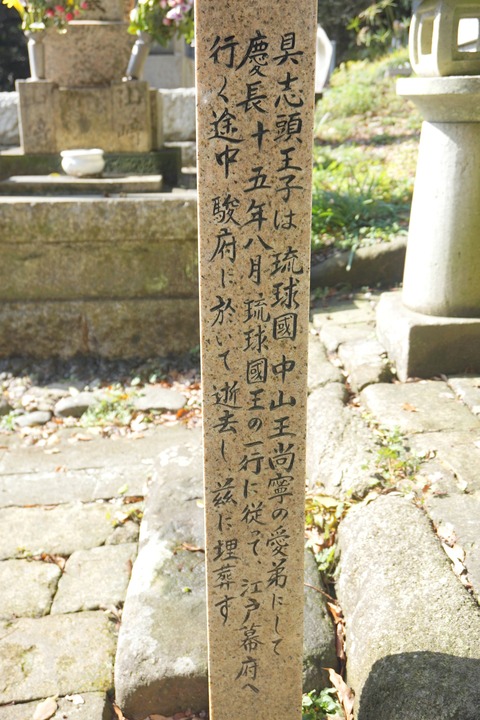 具志頭王子は 琉球國 中山王尚寧の愛弟にして
慶長十五年八月琉球國王の一行に従って、江戸幕府へ
行く途中 駿府に於いて逝去し 茲に埋葬す